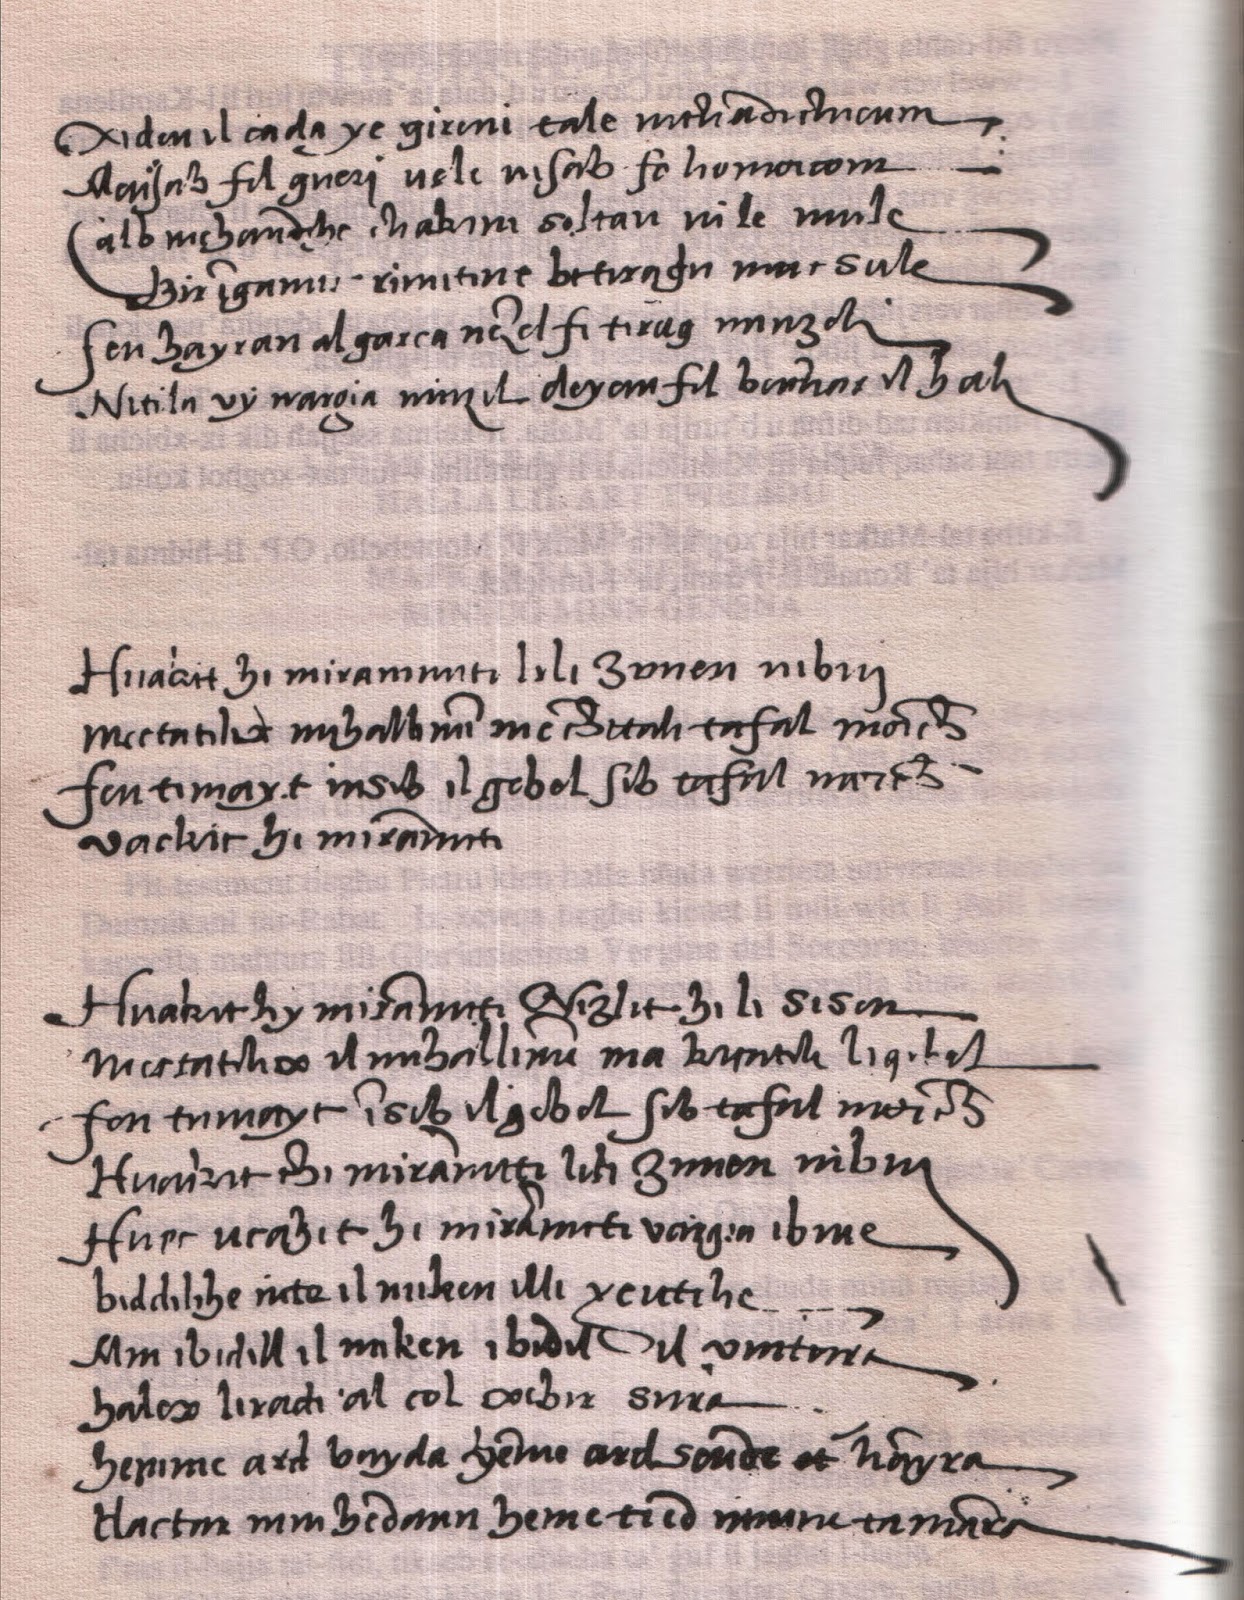 Xideu il cada ye gireni tale nichadithicum
Mensab fil gueri uele nisab fo homorcom
Calb mehandihe chakim soltan ui le mule
Bir imgamic rimitine betiragin mucsule
fen hayran al garca nenzel fi tirag minzeli
Nitila vy nargia ninzil deyem fil bachar il hali
Huakit hi mirammiti lili zimen nibni
Mectatilix mihallimin me chitali tafal morchi
fen timayt insib il gebel sib tafal morchi
vackit hi mirammiti
Huakit hy mirammiti Nizlit hi li sisen
Mectatilix il mihallimin ma kitatili li gebel
fen tumayt insib il gebel sib tafal morchi
Huakit thi mirammiti lili zimen nibni
Huec ucakit hi mirammiti vargia ibnie
biddilihe inte il miken illi yeutihe
Min ibidill il miken ibidil il vintura
halex liradi al col xebir sura
hemme ard bayda hemme ard seude et hamyra
Hactar min hedaun heme tred minne tamara